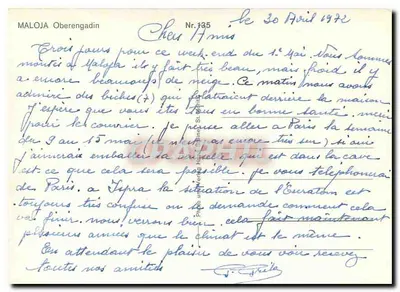 MALOJA Oberengadin Nr. 135
le 30 Avril 1972
Chers Amis
Trois jours pour ce week-end du 1er Mai. Nous sommes
montés à Maloja il y fait très beau, mais froid il y
a encore beaucoup de neige. Ce matin nous avons
admiré des biches (7) qui folatraient derrière la maison
J'espère que vous êtes tous en bonne santé, merci
pour le courrier. Je pense aller à Paris la semaine
du 9 au 15 mai (ce n'est pas encore très sur) si oui
j'aimerais emballer la vaisselle qui est dans la cave
est ce que cela sera possible. je vous téléphonerai
de Paris. à Ispra la situation de l'Euratom est
toujours très confuse on se demande comment cela
va finir. nous verrons bien. cela fait maintenant
plusieurs années que le climat est le même.
En attendant le plaisir de vous voir recevez
toutes nos amitiés